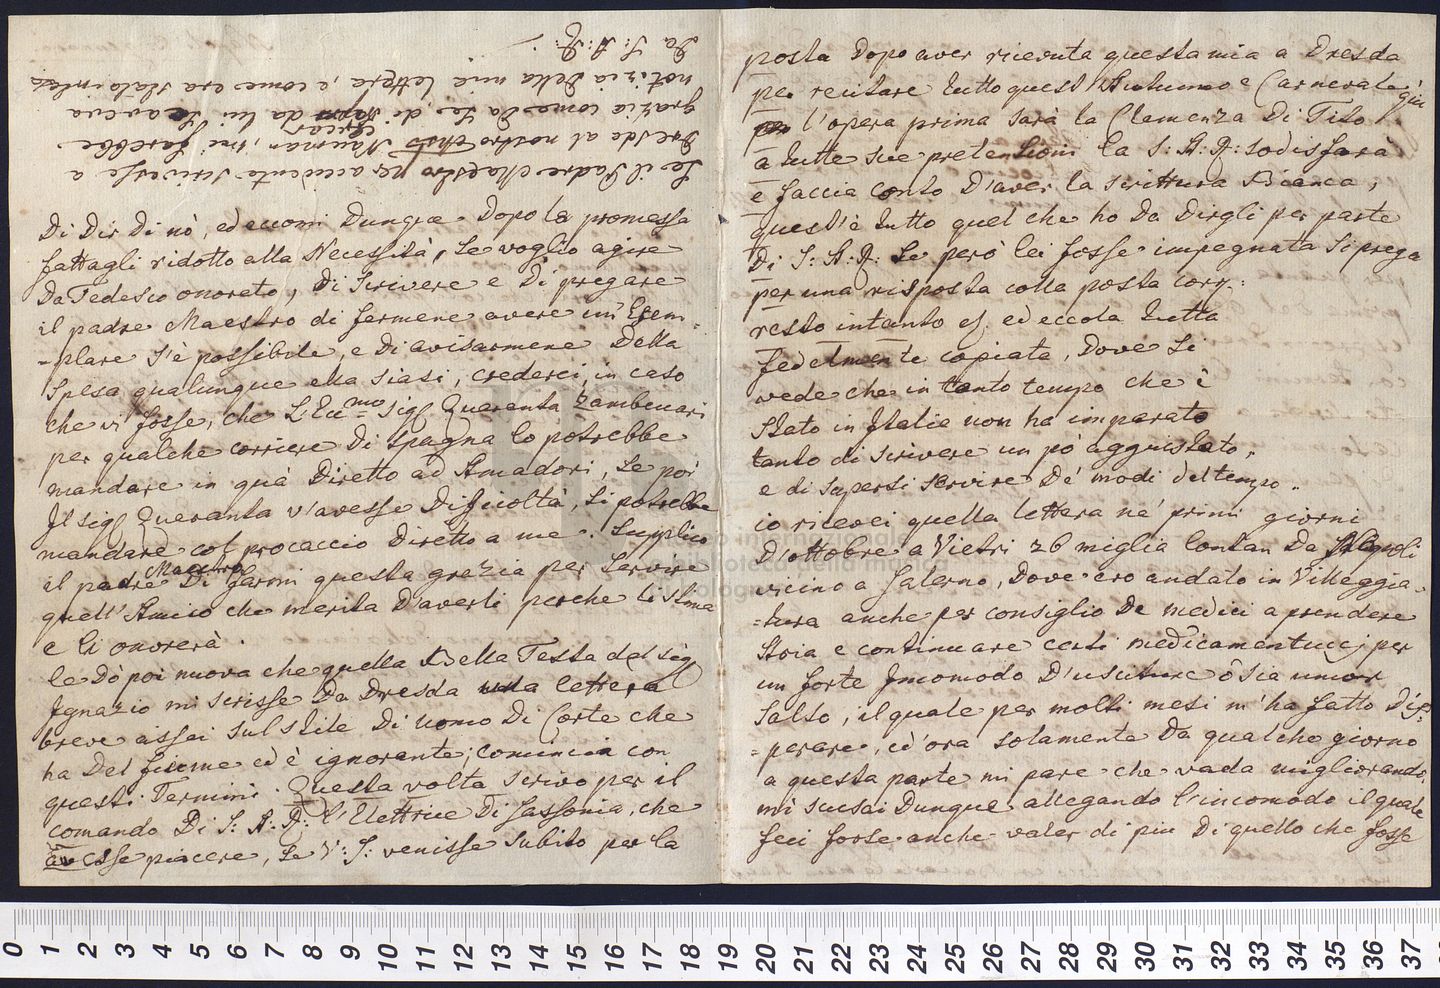 Se il Padre Maestro per accidente scrivesse a
Dresda al nostro Nauman, mi farebbe
grazia come da se, di cercar da lui se aveva
notizia della mia lettera, e come era stata intesa
da S: A: R:
di dir di nò, ed eccomi dunque dopo la promessa
fattagli ridotto alla Necessità, se voglio agire
da Tedesco onorato, di scrivere e di pregare
il padre Maestro di farmene avere un' Esem-
-plare s'è possibile, e di avisarmene della
spesa qualunque ella siasi, crederei, in caso
che vi fosse, che L'Ecc:mo Sigr Zambeccari
per qualche corriere di Spagna lo potrebbe
mandare in quà diretto ad Amadori, se poi
Il sigr Quaranta v'avesse difficoltà, si potrebbe
mandare col procaccio diretto a me. Supplico
il padre Maestro di farmi questa grazia per servire
quell' Amico che merita d'averli perche li stima
e li onorerà.
le dò poi nuova che quella Bella Testa del sigr
Ignazio mi scrisse da Dresda una lettera
breve assai sul stile di uomo di Corte che
ha del fiume ed è ignorante; comincia con
questi Termini. Questa volta scrivo per il
comando di S: A: R: l'Elettrice di Sassonia, che
avesse piacere, se V: S: venisse subito per la
posta dopo aver riceuta questa mia a Dresda
per recitare tutto quest' Autunno e Carnevale quì
l'opera prima sarà la Clemenza di Tito.
a tutte sue pretensioni la S: A: R: sodisfarà
e faccia conto d'aver la scrittura Bianca,
quest'è tutto quel che ho da dirgli per parte
di S: A: R: se però lei fosse impegnata si prega
per una risposta colla posta corr.:
resto intanto ed eccola tutta
fedelmente copiata, dove si
vede che in tanto tempo che è
stato in Italia non ha imparato
tanto di scrivere un pò aggiustato,
e di sapersi servire de' modi del tempo.
io ricevei quella lettera ne' primi giorni
d'ottobre a Vietri 26 miglia lontan da Napoli
vicino a Salerno, dove ero andato in Villeggia-
-tura anche per consiglio de medici a prendere
Aria e continuare certi medicamentucci per
un forte Incomodo d'usciture ò sia umor
salso, il quale per molti mesi m'ha fatto dis-
-perare, ed ora solamente da qualche giorno
a questa parte mi pare che vada migliorando.
mi scusai dunque allegando l'incomodo il quale
feci forse anche valer di piu di quello che fosse